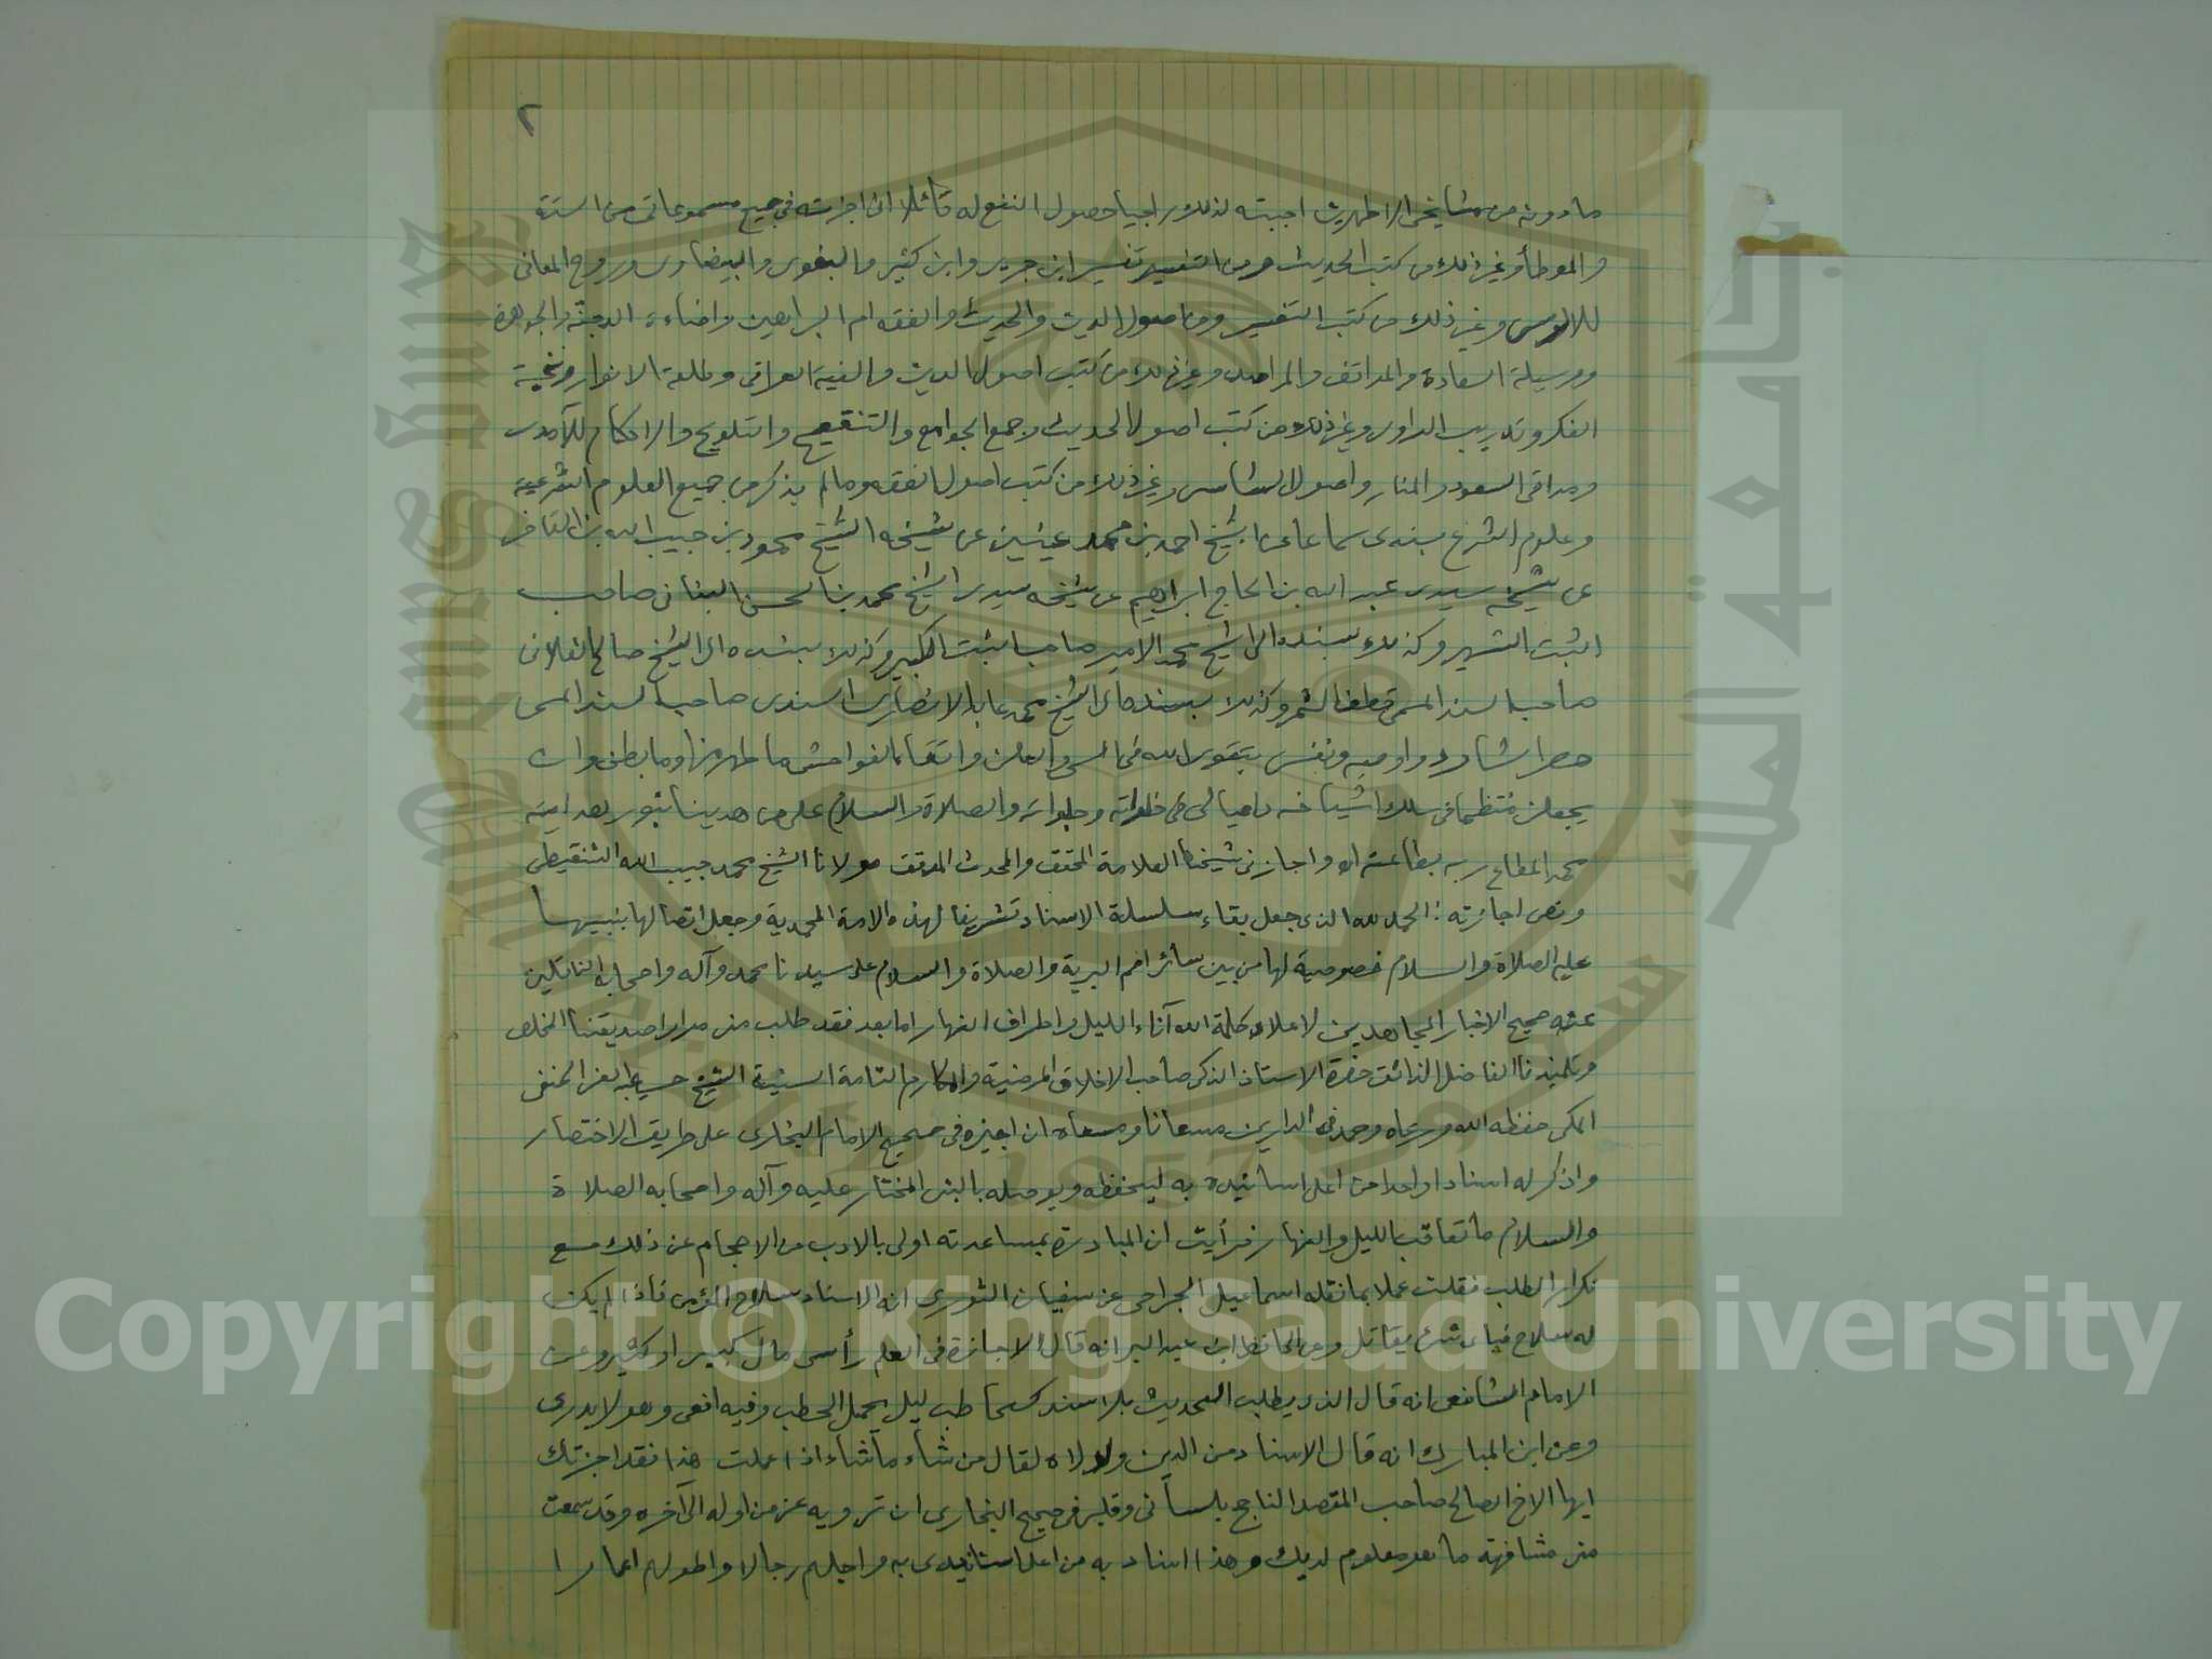 ٢
ما دونه من مشايخي الاطهرين اجبته لذلك راجيا حصول النفع له قائلا انى اجزته في جميع مسموعاتى من الستة
والموطأ وغير ذلك من كتب الحديث ومن التفسير تفسير ابن جرير وابن كثير والبغوى والبيضاوى وروح المعانى
للالوسى وغير ذلك من كتب التفسير ومن اصول الدين والحديث والفقه ام البراهين واضاءة الدجنة والجوهرة
ووسيلة السعادة والمواقف والمراصد وغير ذلك من كتب اصول الدين والفية العراقى وطلعة الانوار ونخبة
الفكر وتدريب الراوى وغير ذلك من كتب اصول الحديث وجمع الجوامع والتنقيح والتلويح والاحكام للآمدى
ومراقى السعود والمنار واصول الشاسى وغير ذلك من كتب اصول الفقه وما لم يذكر من جميع العلوم الشرعية
وعلوم الشرع بسندى سماعا عن الشيخ احمد بن محمد عينين عن شيخه الشيخ محمود بن حبيب الله بن القاضى
عن شيخه سيدى عبد الله بن الحاج ابراهيم عن شيخه سيدى الشيخ محمد بن الحسن البنانى صاحب
الثبت الشهير وكذلك بسنده الى الشيخ محمد الامير صاحب الثبت الكبير وكذلك بسنده الى الشيخ صالح الفلانى
صاحب السند المسمى قطف الثمر وكذلك بسنده الى الشيخ محمد عابد الانصارى السندى صاحب السند المسمى
حصر الشارد واوصيه ونفسى بتقوى الله فى السر والعلن واتقاء الفواحش ما ظهر منها وما بطن وان
يجعلنى منتظما فى سلك اشياخه داعيا لى فى خلواته وجلواته والصلاة والسلام على من هدينا بنور هدايته
محمد المطاع ربه بطاعته اه واجازنى شيخنا العلامة المحقق والمحدث المدقق مولانا الشيخ محمد حبيب الله الشنقيطى
ونص اجازته : الحمد لله الذى جعل بقاء سلسلة الاسناد تشريفا لهذه الامة المحمدية وجعل اتصالها بنبيها
عليه الصلاة والسلام خصوصية لها من بين سائر امم البرية والصلاة والسلام على سيدنا محمد وآله واصحابه الناقلين
عنه صحيح الاخبار المجاهدين لاعلاء كلمة الله آناء الليل واطراف النهار اما بعد فقد طلب منى مرارا صديقنا المخلص
وتلميذنا الفاضل الذائق حضرة الاستاذ الذكى صاحب الاخلاق المرضية والمكارم التامة السنية الشيخ حسن عبد الغنى الحنفى
المكى حفظه الله ورعاه وحمد فى الدارين مسعانا ومسعاه ان اجيزه فى صحيح الامام البخارى على طريق الاختصار
واذكر له اسنادا واحدا من اعلى اسانيده به ليحفظه ويوصله بالنبى المختار عليه وآله واصحابه الصلاة
والسلام ما تعاقب الليل والنهار فرأيت ان المبادرة بمساعدته اولى بالادب من الاحجام عن ذلك مع
تكرار الطلب فقلت عملا بما نقله اسماعيل الجراحى عن سفيان الثورى انه الاسناد سلاح المؤمن فاذا لم يكن
له سلاح فباى شئ يقاتل وعن الحافظ ابن عبد البر انه قال الاجازة فى العلم رأس مال كبير او كثير وعن
الامام الشافعى انه قال الذى يطلب الحديث بلا سند كحاطب ليل يحمل الحطب وفيه افعى وهو لا يدرى
وعن ابن المبارك انه قال الاسناد من الدين ولولاه لقال من شاء ما شاء اذا علمت هذا فقد اجزتك
ايها الاخ الصالح صاحب المقصد الناجح بلسانى وقلبى فى صحيح البخارى ان ترويه عنى من اوله الى آخره وقد سمعت
منى مشافهة ما هو معلوم لديك وهذا اسناد به من اعلا اسانيدى به واجلهم رجالا واطولهم اعمارا